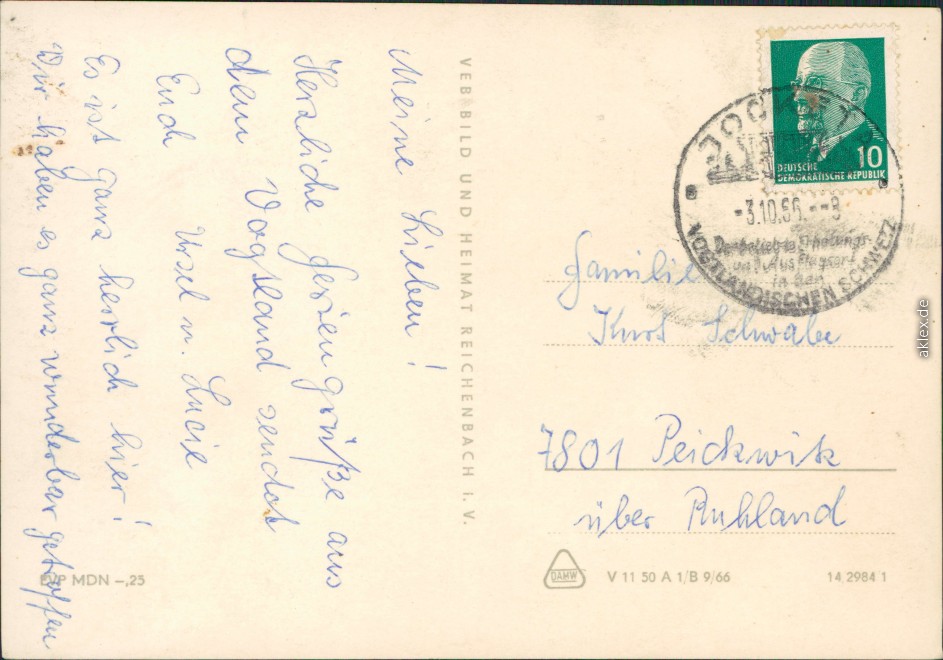 Meine Lieben!
Herzliche Feriengrüße aus
dem Vogtland sendet
Euch Ursel u. Lucie
Es ist ganz herrlich hier!
Wir haben es ganz wunderbar getroffen
VEB BILD UND HEIMAT REICHENBACH i. V.
10
DEUTSCHE
DEMOKRATISCHE REPUBLIK
-3.10.66.--8
Der beliebte Erholungs-
und Ausflugsort
in der
VOGTLÄNDISCHEN SCHWEIZ
Familie
Kurt Schwabe
7801 Peickwitz
über Ruhland
EVP MDN -,25
DAMW
V 11 50 A 1/B 9/66
14 2984 1
aklex.de